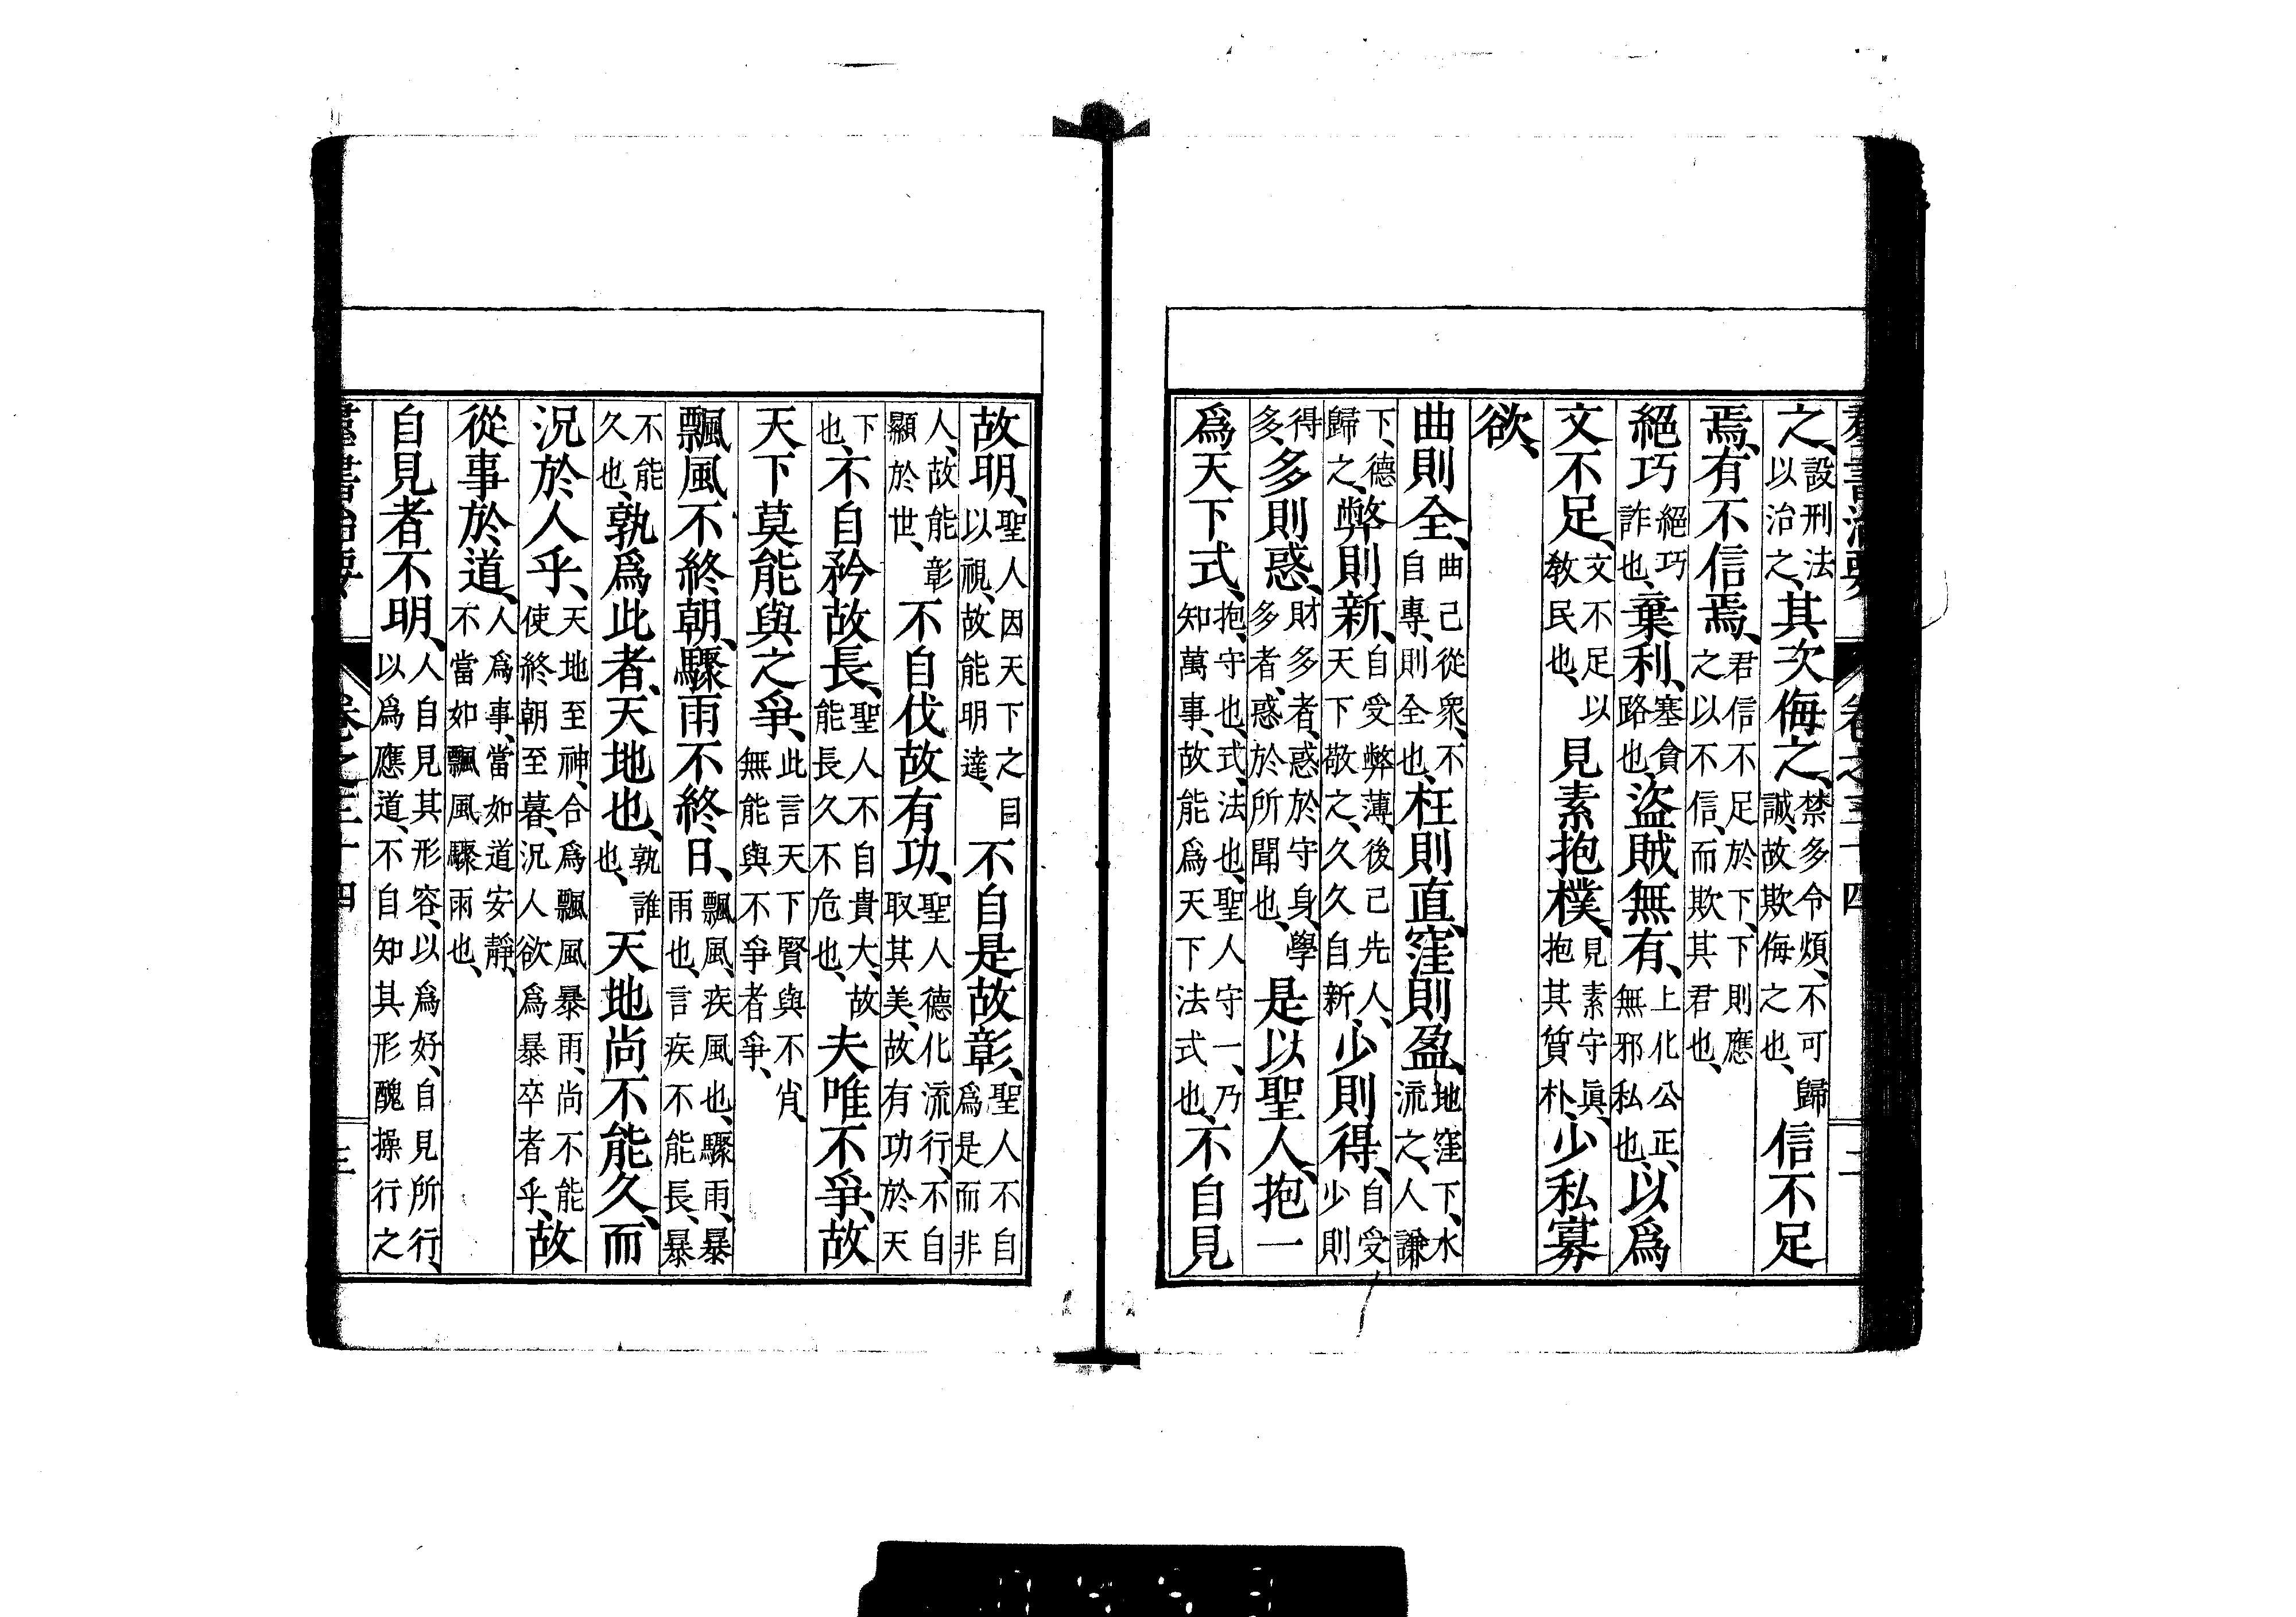 羣書治要 卷之三十四 二
之、設刑法以治之、其次侮之、禁多令煩、不可歸誠、故欺侮之也、信不足
焉、有不信焉、君信不足於下、下則應之以不信、而欺其君也、
絕巧絕巧詐也、棄利、塞貪路也、盜賊無有、上化公正、無邪私也、以爲
文不足、文不足以敎民也、見素抱樸、見素守眞、抱其質朴、少私寡
欲、
曲則全、曲己從衆、不自專、則全也、枉則直、窪則盈、地窪下、水流之、人謙
下、德歸之、弊則新、自受弊薄、後己先人、天下敬之、久久自新、少則得、自受少則
得多、多則惑、財多者、惑於守身、學多者、惑於所聞也、是以聖人、抱一
爲天下式、抱、守也、式、法也、聖人守一、乃知萬事、故能爲天下法式也、不自見
故明、聖人因天下之目以視、故能明達、不自是故彰、聖人不自爲是而非
人、故能彰顯於世、不自伐故有功、聖人德化流行、不自取其美、故有功於天
下也、不自矜故長、聖人不自貴大、故能長久不危也、夫唯不爭、故
天下莫能與之爭、此言天下賢與不肖、無能與不爭者爭、
飄風不終朝、驟雨不終日、飄風、疾風也、驟雨、暴雨也、言疾不能長、暴
不能久也、孰爲此者、天地也、孰誰也、天地尚不能久、而
況於人乎、天地至神、合爲飄風暴雨、尚不能使終朝至暮、況人欲爲暴卒者乎、故
從事於道、人爲事、當如道安靜、不當如飄風驟雨也、
自見者不明、人自見其形容、以爲好、自見所行、以爲應道、不自知其形醜操行之
羣書治要 卷之三十四 三